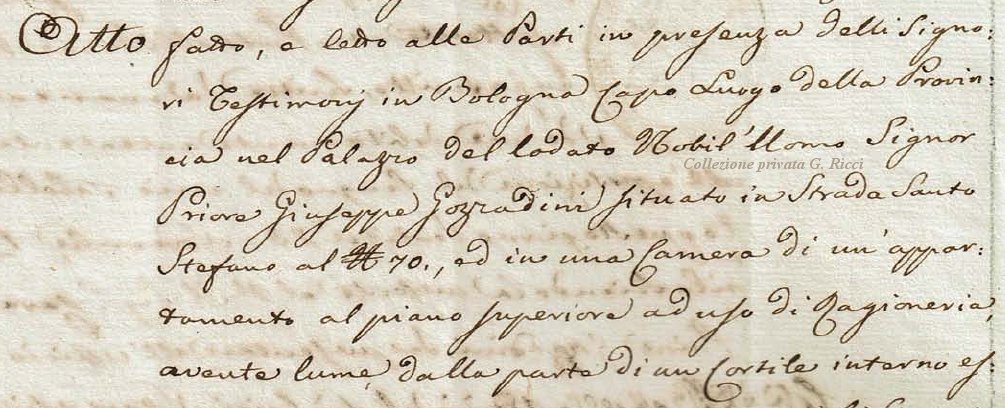 Atto fatto, e letto alle Parti in presenza delli Signo:
ri Testimonj in Bologna Capo Luogo della Provin:
cia nel Palazzo del lodato Nobil'Uomo Signor
Collezione privata G. Ricci
Priore Giuseppe Gozzadini situato in Strada Santo
Stefano al # 70., ed in una Camera di un'appar:
tamento al piano superiore ad uso di Ragioneria,
avente lume dalla parte di un Cortile interno es: